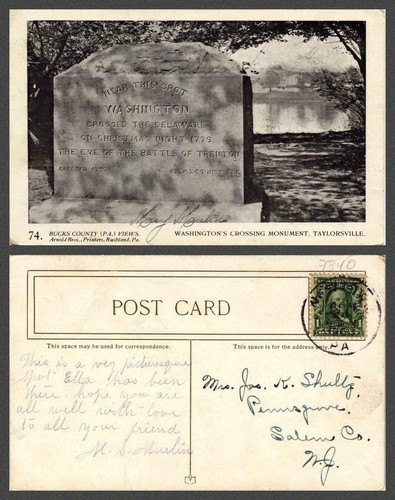 NEAR THIS SPOT
WASHINGTON
CROSSED THE DELAWARE
ON CHRISTMAS NIGHT 1776
THE EVE OF THE BATTLE OF TRENTON
ERECTED 1895 BUCKS CO. HIST. SOC.
74. BUCKS COUNTY (PA.) VIEWS.
Arnold Bros., Printers, Rushland, Pa.
WASHINGTON'S CROSSING MONUMENT, TAYLORSVILLE.
7340
POST CARD
This space may be used for correspondence.
This space is for the address only.
PA
This is a very picturesque
spot Ella has been
there. hope you are
all well with love
to all your friend
M. S. Murlin
Mrs. Jos. K. Shultz
Pennsgrove.
Salem Co.
N.J.